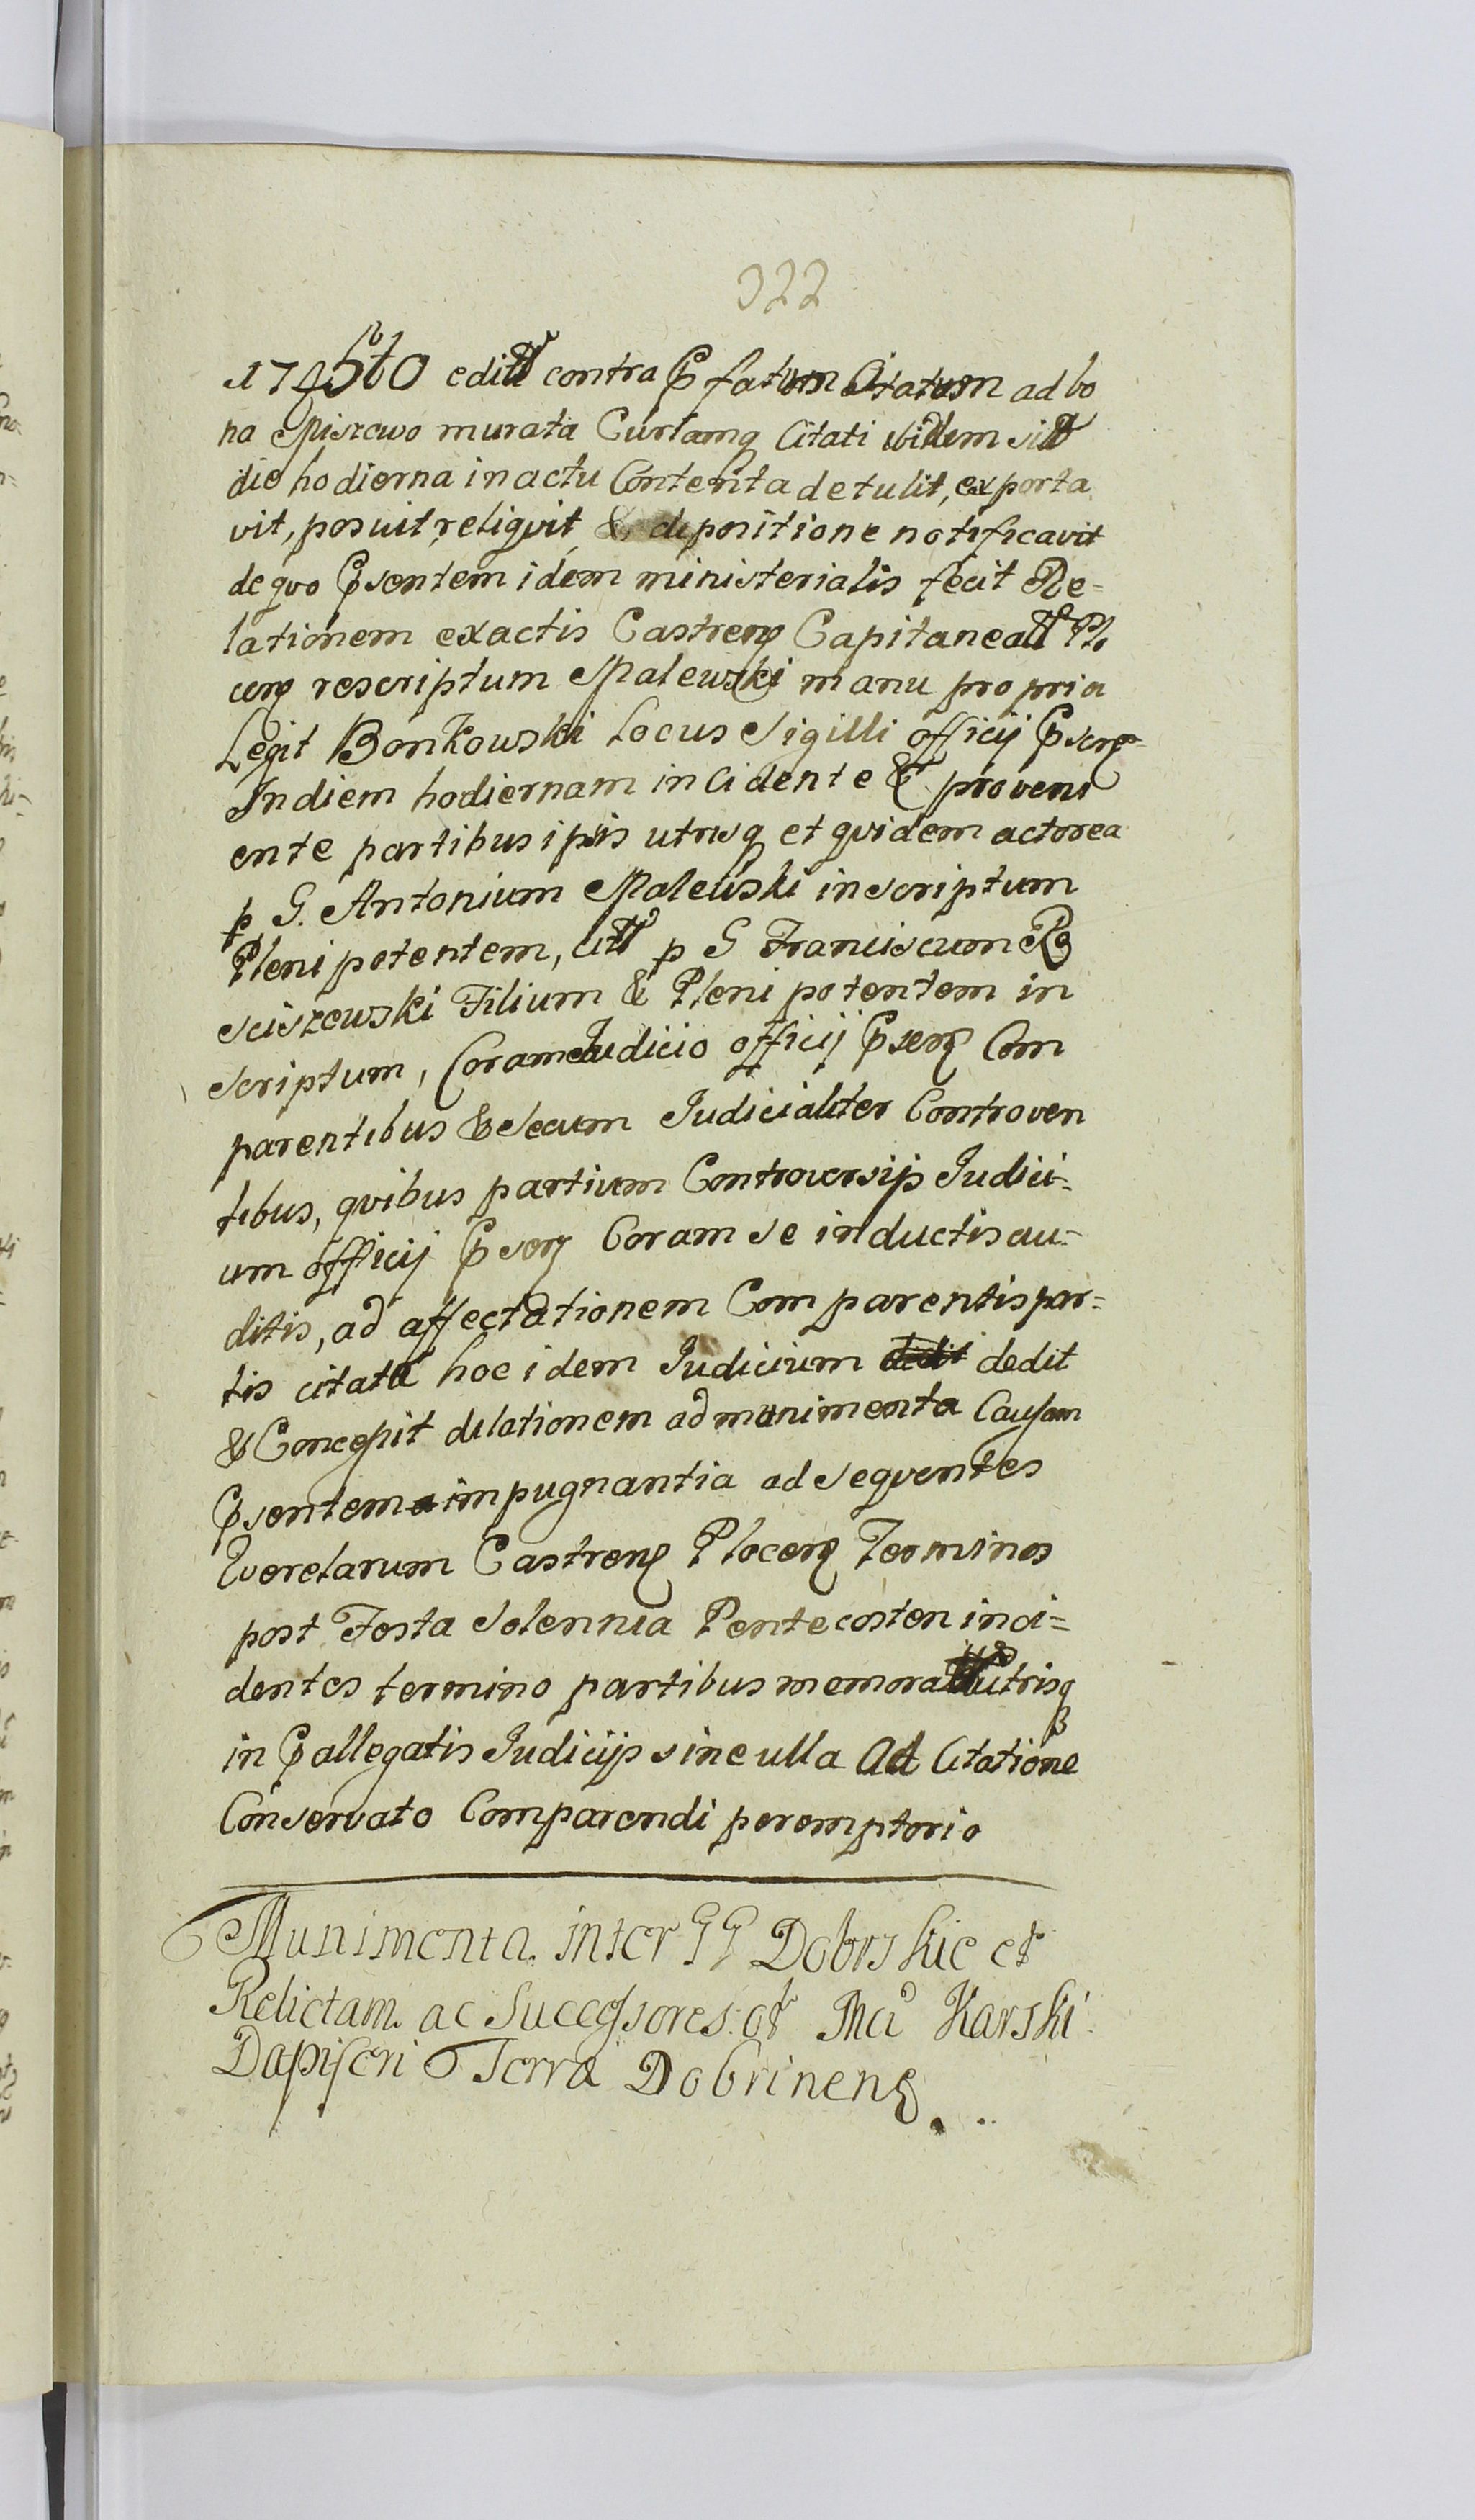 322
1745to editt contra Pfatum Citatum ad bo
na Miszewo murata Curiamq Citati ibidem sitt
die hodierna in actu Contenta detulit, exporta
vit, posuit, reliqvit & depositione notificavit
de qvo Psentem idem ministerialis fecit Re-
lationem ex actis Castren Capitaneatt Plo
cen rescriptum Malewski manu propria
Legit Bonkowski Locus Sigilli officij Psen
In diem hodiernam incidente & proveni
ente partibus ipsis utrisq et qvidem actorea
p G. Antonium Malewski inscriptum
Plenipotentem, citt p G Franciscum Ro
sciszewski Filium & Plenipotentem in
scriptum, Coram Judicio officij Psen Com
parentibus & secum Judicialiter Controven
tibus, qvibus partium Controversijs Judici-
um officij Psen Coram se inductis au-
ditis, ad affectationem Comparentis par-
tis citata hoc idem Judicium dedit dedit
& Concessit dilationem ad munimenta Causam
Psentem impugnantia ad seqventes
Qverelarum Castren Plocen Terminos
post Festa Solennia Pentecosten inci-
dentes termino partibus memoratt utrisq
in Pallegatis Judicijs sine ulla Ad Citatione
Conservato Comparendi peremptorio
Munimenta inter GG Dobrskie et
Relictam ac Successores ol Mci Karski
Dapiferi Terra Dobrinens